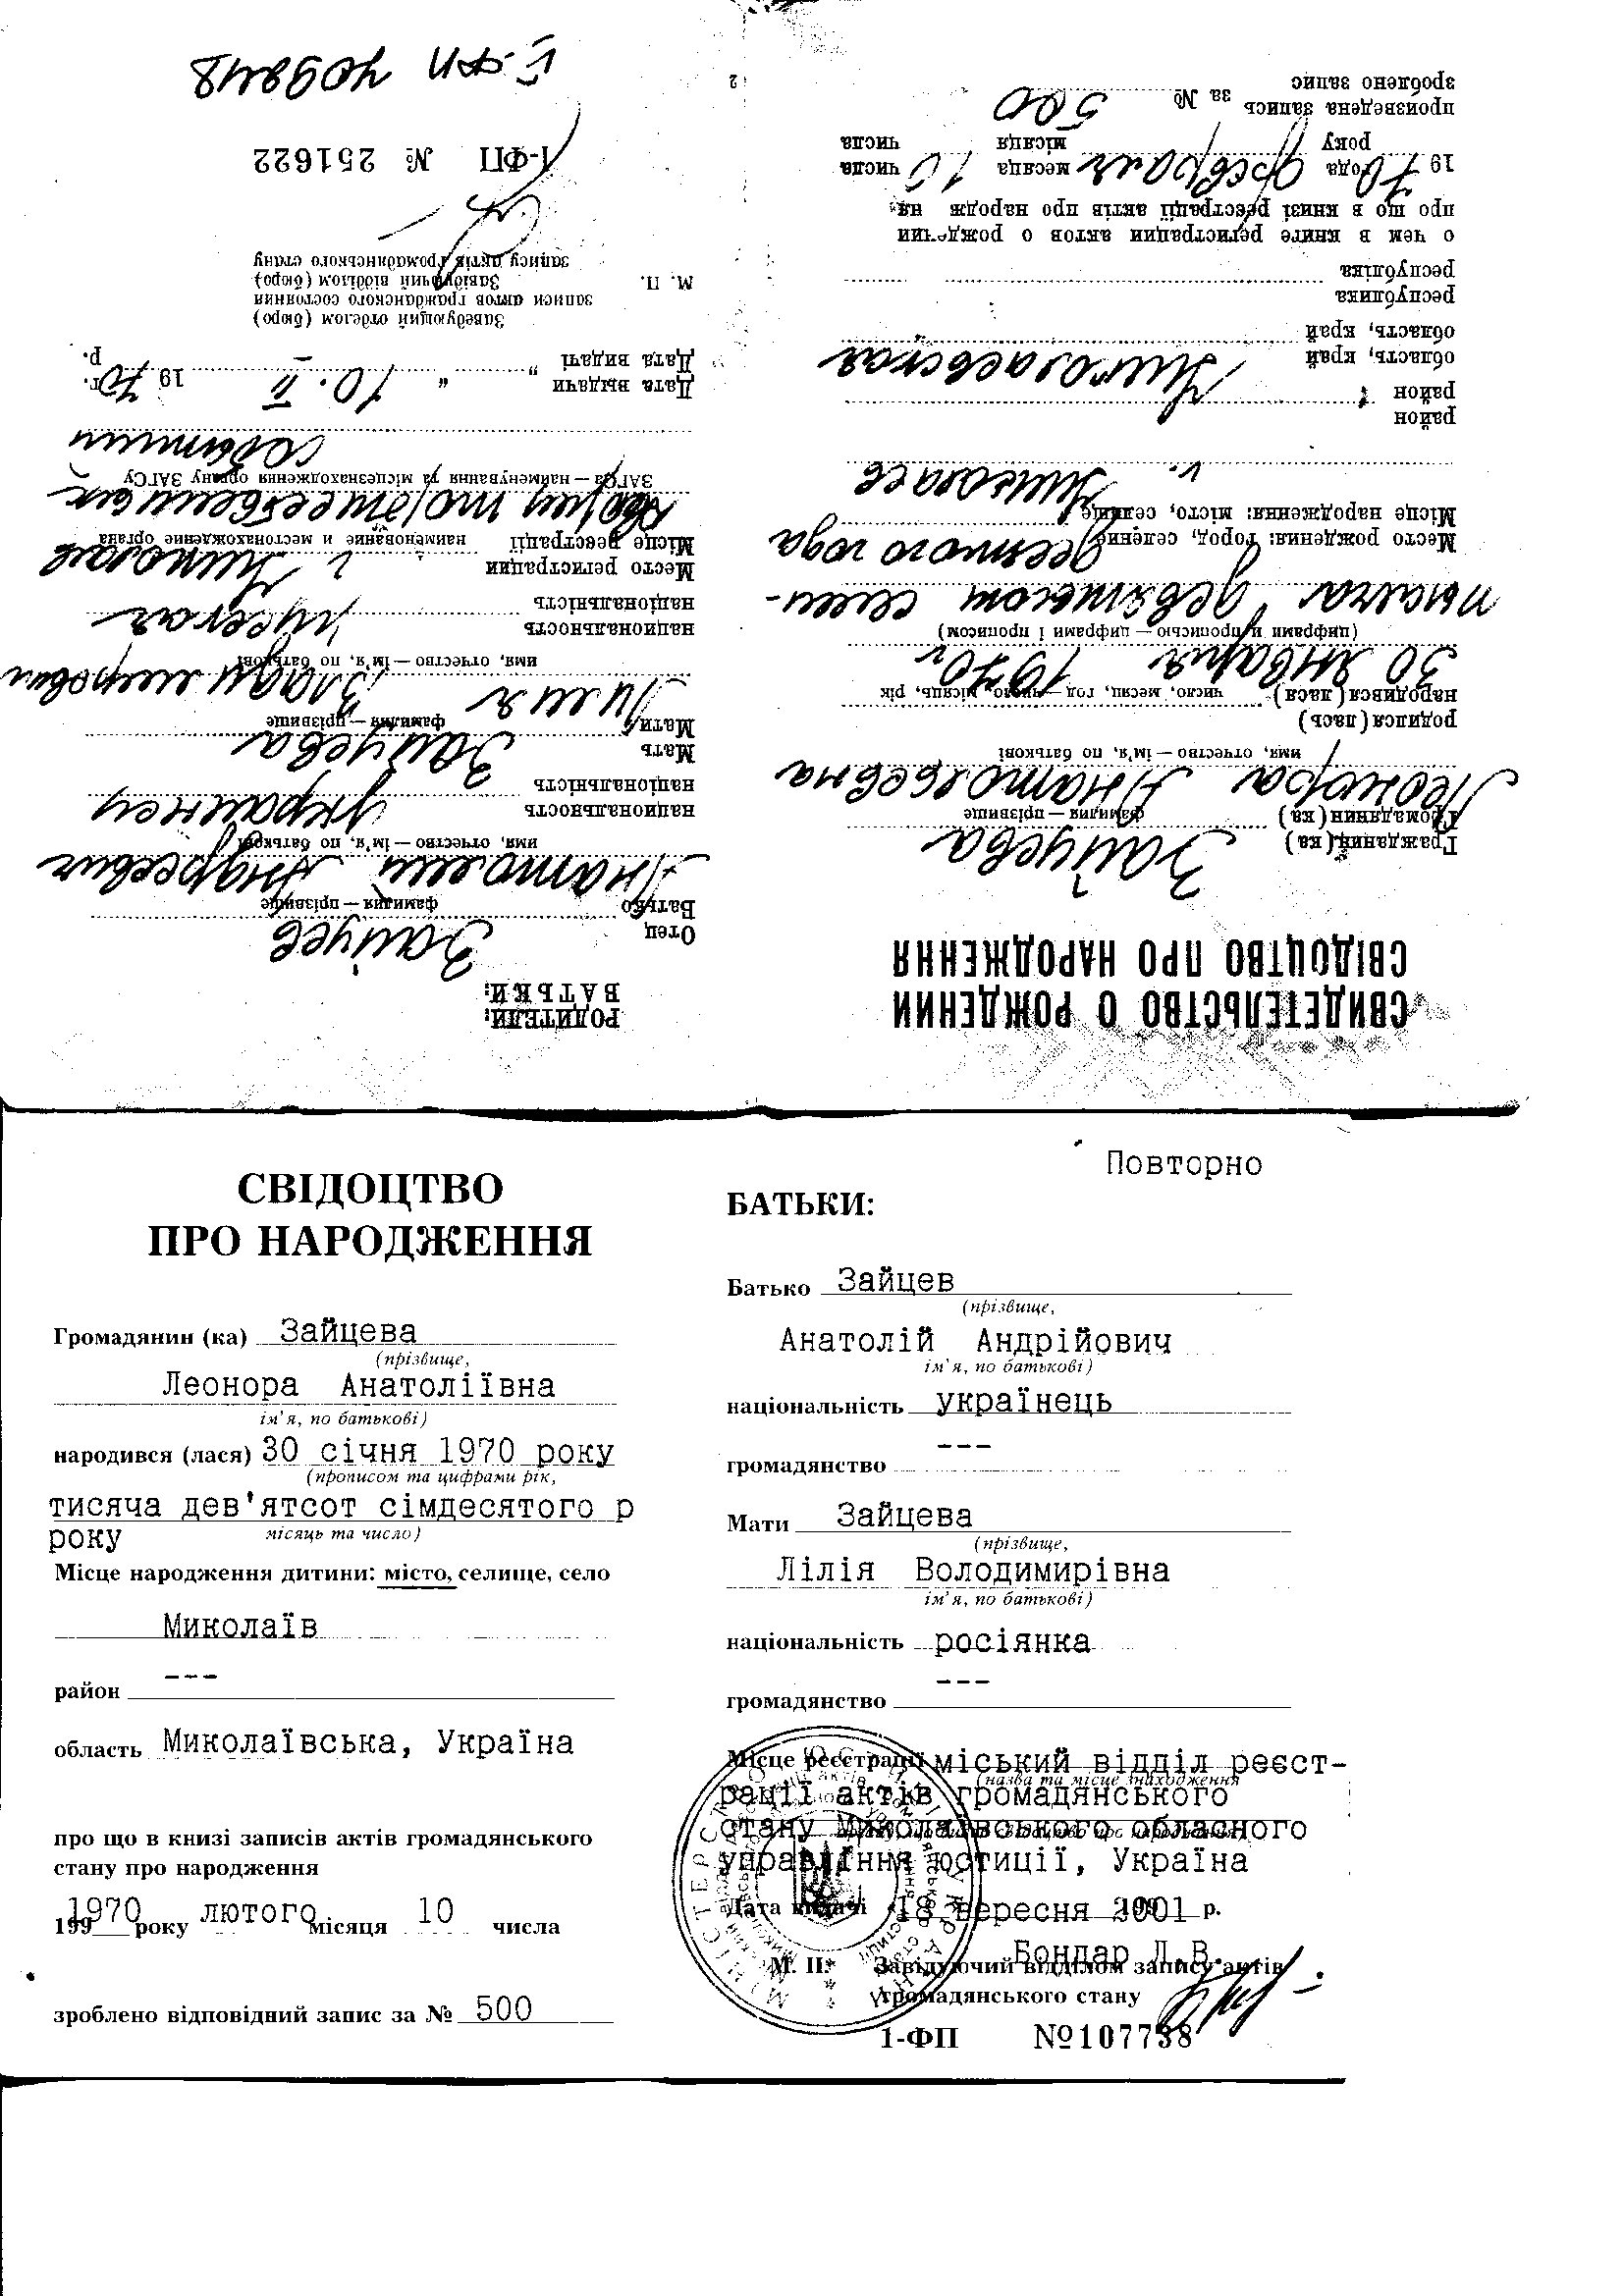 СВИДЕТЕЛЬСТВО О РОЖДЕНИИ
СВІДОЦТВО ПРО НАРОДЖЕННЯ
Гражданин(ка) Зайцева
Громадянин(ка) фамилия — прізвище
Леонора Анатольевна
имя, отчество — ім'я, по батькові
родился(лась)
народився(лася) число, месяц, год — число, місяць, рік
30 января 1970 г
(цифрами и прописью — цифрами і прописом)
тысяча девятьсот семи-
десятого года
Место рождения: город, селение
Місце народження: місто, селище
г. Николаев
район
район
область, край Николаевская
область, край
республика
республіка
о чем в книге регистрации актов о рождении
про що в книзі реєстрації актів про народж
1970 года февраля месяца 10 числа
року місяця числа
произведена запись за № 500
зроблено запис
2
РОДИТЕЛИ:
БАТЬКИ:
Отец Зайцев
Батько фамилия — прізвище
Анатолий Андреевич
имя, отчество — ім'я, по батькові
национальность украинец
національність
Мать Зайцева
Мати фамилия — прізвище
Лилия Владимировна
имя, отчество — ім'я, по батькові
национальность русская
національність
Место регистрации г Николаев
Місце реєстрації наименование и местонахождение органа
ЗАГСа — найменування та місцезнаходження органу ЗАГСу
событий
Дата выдачи " " 10. II 1970 г.
Дата видачі " р.
Заведующий отделом (бюро)
записи актов гражданского состояния
М. П. Завідуючий відділом (бюро)
запису актів громадянського стану
I-ФП № 251622
СВІДОЦТВО
ПРО НАРОДЖЕННЯ
Громадянин (ка) Зайцева
(прізвище,
Леонора Анатоліївна
ім'я, по батькові)
народився (лася) 30 січня 1970 року
(прописом та цифрами рік,
тисяча дев'ятсот сімдесятого р
року місяць та число)
Місце народження дитини: місто, селище, село
Миколаїв
район ---
область Миколаївська, Україна
про що в книзі записів актів громадянського
стану про народження
199 1970 року лютого місяця 10 числа
зроблено відповідний запис за № 500
Повторно
БАТЬКИ:
Батько Зайцев
(прізвище,
Анатолій Андрійович
ім'я, по батькові)
національність українець
громадянство ---
Мати Зайцева
(прізвище,
Лілія Володимирівна
ім'я, по батькові)
національність росіянка
громадянство ---
Місце реєстрації міський відділ реєст-
(назва та місце знаходження
рації актів громадянського
стану Миколаївського обласного
управління юстиції, Україна
Дата видачі 18 вересня 2001 199 р.
Бондар Л.В.
М. П. Завідуючий відділом запису актів
громадянського стану
1-ФП №107738